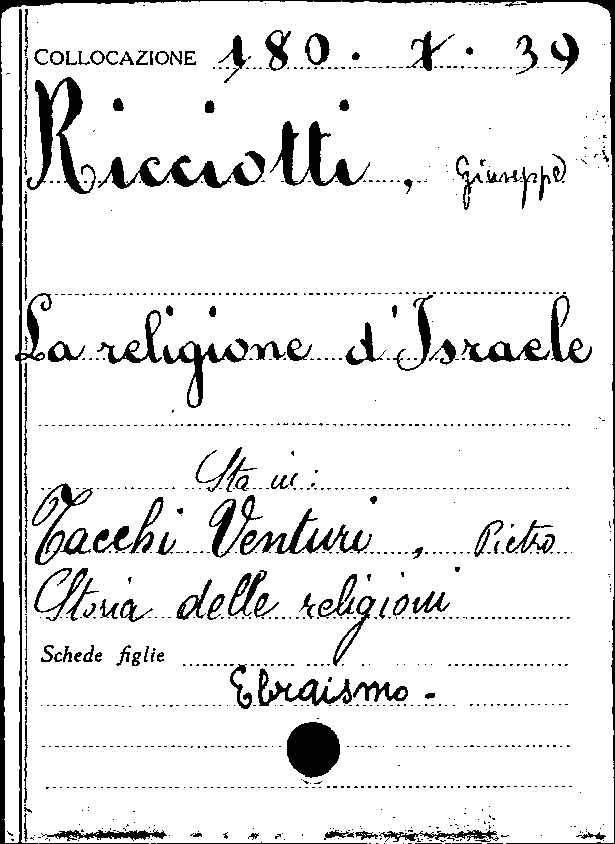 COLLOCAZIONE 180. X. 39
Ricciotti, Giuseppe
La religione d'Israele
Sta in:
Tacchi Venturi, Pietro
Storia delle religioni
Schede figlie
Ebraismo -